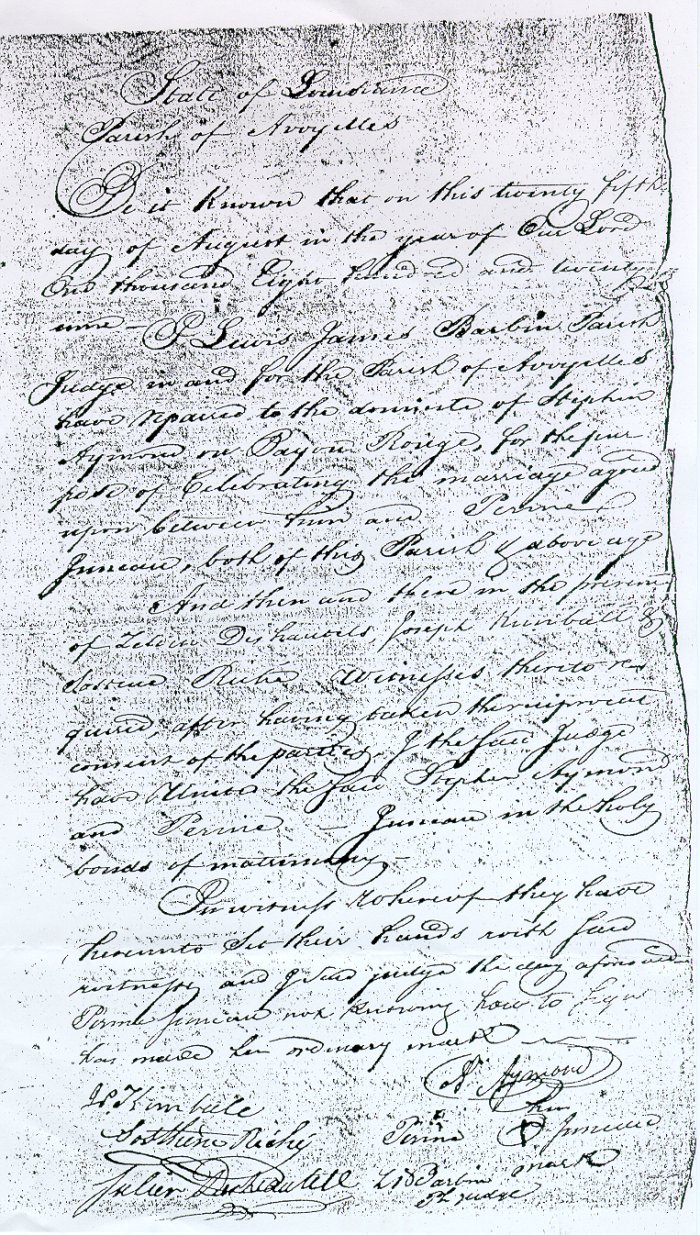 State of Louisiana
Parish of Avoyelles
Be it Known that on this twenty fifth
day of August in the year of Our Lord
One thousand Eight hundred and twenty
nine — I Lewis James Barbin Parish
Judge in and for the Parish of Avoyelles
have repaired to the domicile of Stephen
Aymond on Bayou Rouge, for the pur
pose of Celebrating the marriage agreed
upon between him and Perine
Juneau, both of this Parish & above age
And then and there in the presence
of Deshautels, Joseph Kimball &
Sostene Riché Witnesses thereto re
quired, after having taken the reciprocal
consent of the parties, I the said Judge
have United the said Stephen Aymond
and Perine — Juneau in the holy
bonds of matrimony —
In witness whereof they have
hereunto Set their hands with said
witnesses and I said judge the day aforesaid
Perine Juneau not Knowing how to Sign
has made her ordinary mark
Aymond
J. Kimball her
Sosthène Riché Perine Juneau
Julien LJ Barbin mark
Ph Judge